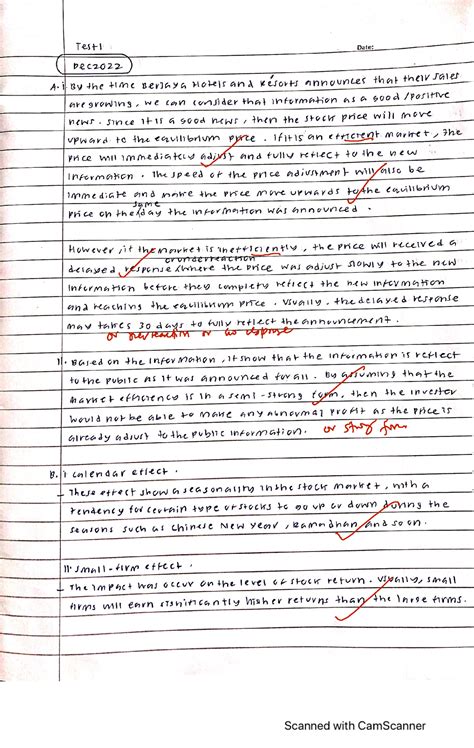 Test 1
Date:
DEC2022
A. i By the time Berjaya Hotels and Resorts announces that their sales
are growing, we can consider that information as a good /positive
news. Since it is a good news, then the stock price will move
upward to the equilibrium price. If it is an efficient market, the
price will immediately adjust and fully reflect to the new
information. The speed of the price adjustment will also be
immediate and make the price move upwards to the equilibrium
same
price on the day the information was announced.
However, if the market is inefficiently, the price will received a
or underreaction
delayed response where the price was adjust slowly to the new
information before they complety reflect the new information
and reaching the equilibrium price. Usually, the delayed response
may takes 30 days to fully reflect the announcement.
or overreaction or no response
ii. Based on the information, it show that the information is reflect
to the public as it was announced for all. By assuming that the
market efficiency is in a semi-strong form, then the investor
would not be able to make any abnormal profit as the price is
already adjust to the public information.
or strong form
B. i calendar effect.
- These effect show a seasonality in the stock market, with a
tendency for certain type of stocks to go up or down during the
seasons such as Chinese New Year, Ramadhan and so on.
ii small-firm effect.
- The impact was occur on the level of stock return. Usually, small
firms will earn significantly higher returns than the large firms.
Scanned with CamScanner